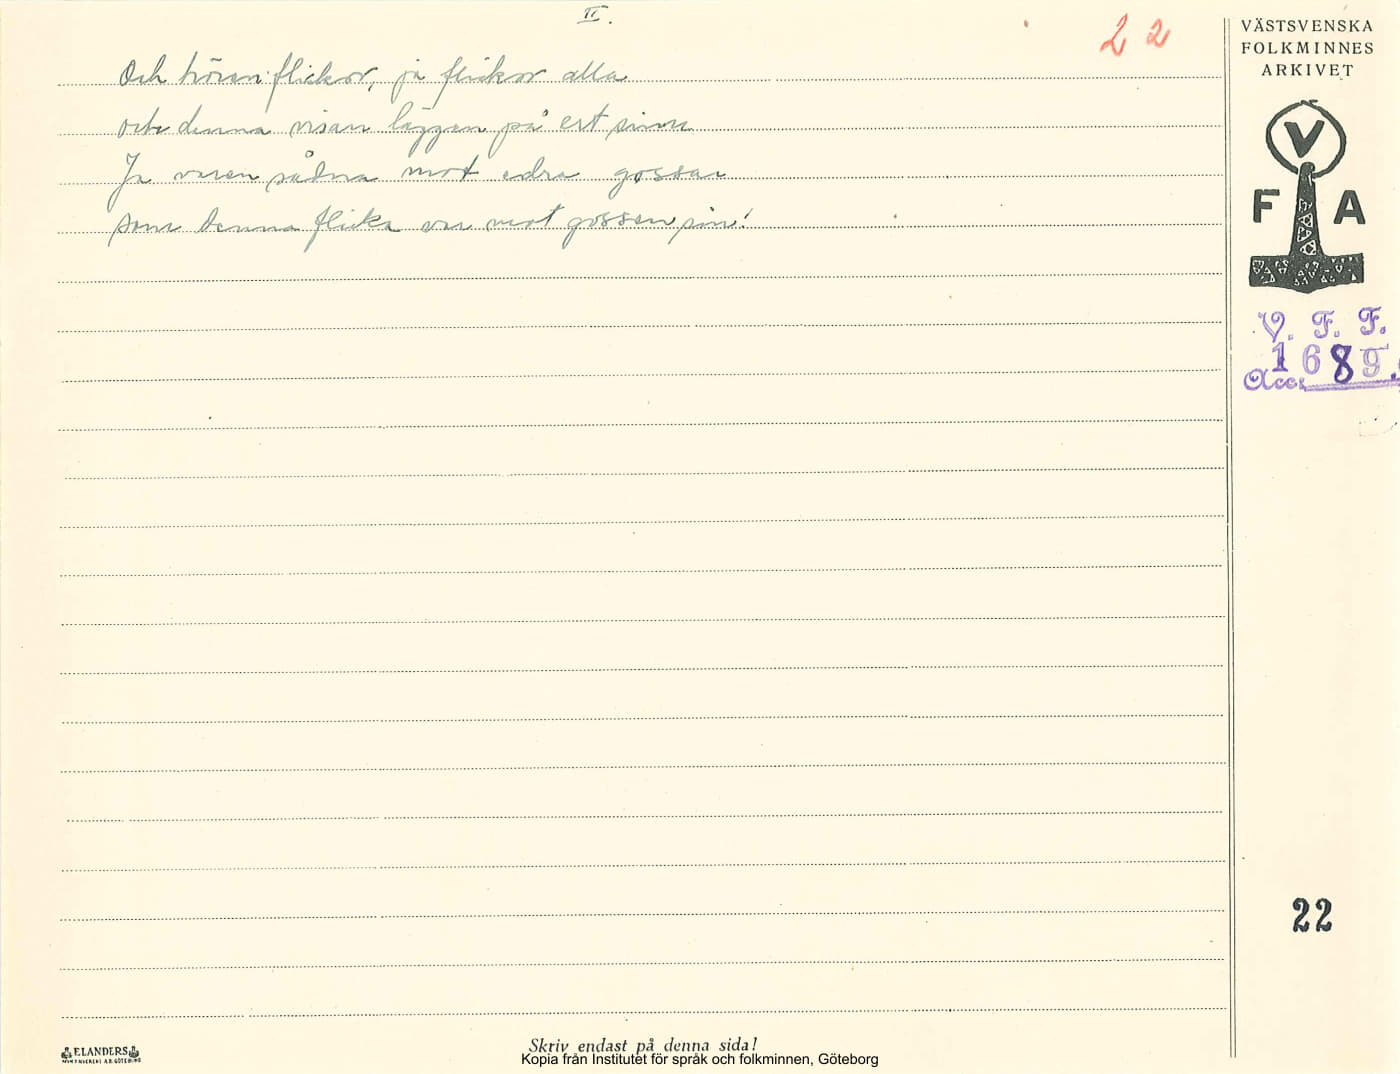 II.
22
Och hören flickor, ja flickor alla
och denna visan läggen på ert sinn
Ja varen sådna mot edra gossar
som denna flicka var mot gossen sin!
VÄSTSVENSKA
FOLKMINNES
ARKIVET
V
F A
V. F. F.
1689
Acc:
22
ELANDERS
Skriv endast på denna sida!
Kopia från Institutet för språk och folkminnen, Göteborg